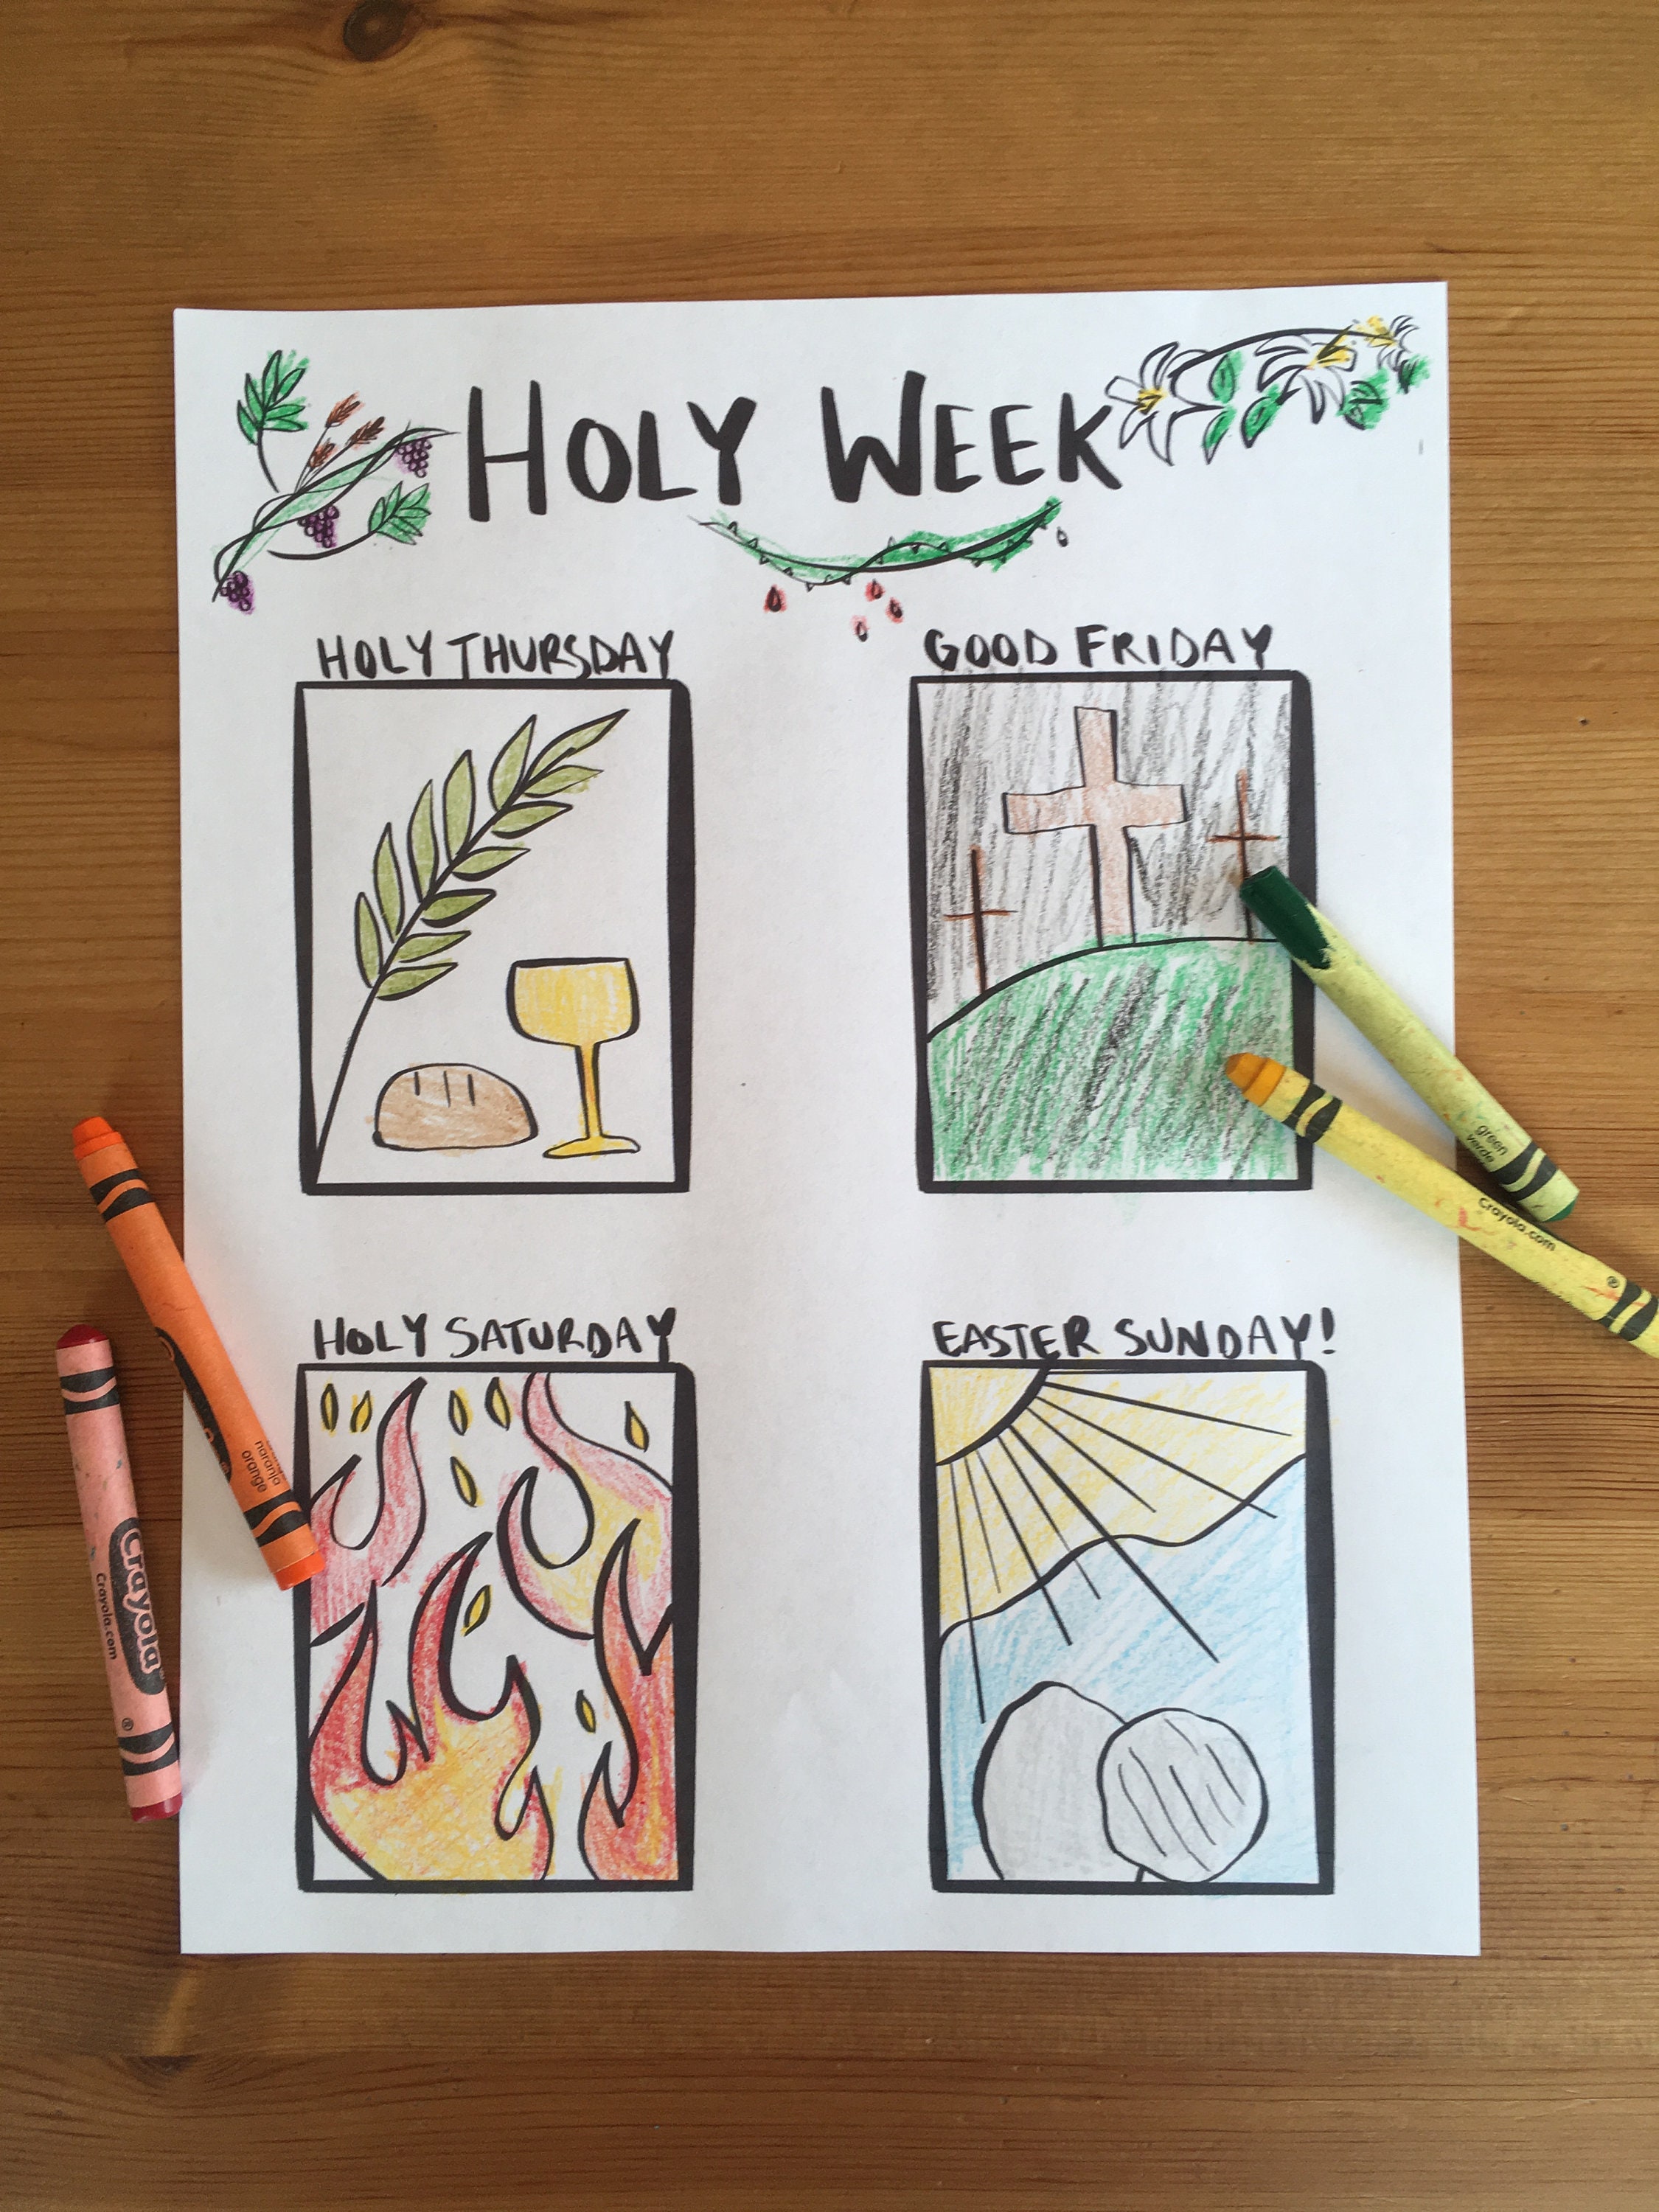 HOLY WEEK
HOLY THURSDAY
GOOD FRIDAY
HOLY SATURDAY
EASTER SUNDAY!
green
verde
Crayola.com
®
naranja
orange
Crayola
Crayola.com
®